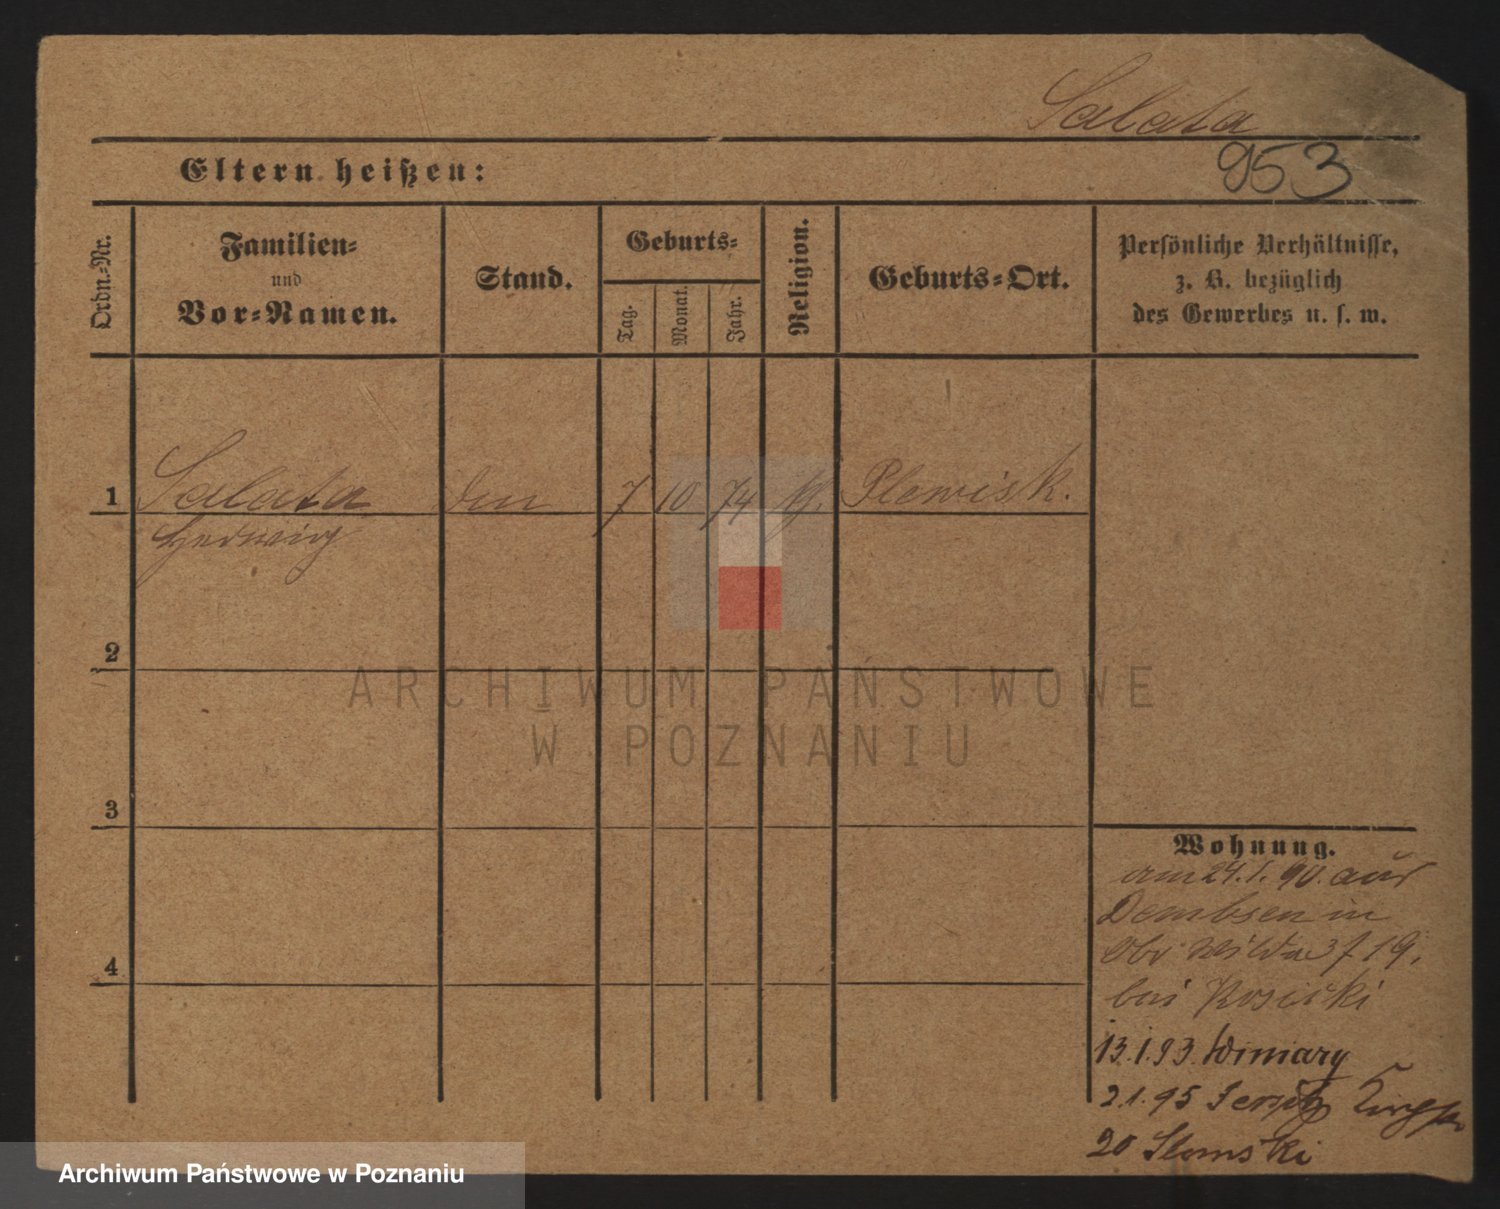 Salata
953
Eltern heißen:
Ordn.-Nr.
Familien-
und
Vor-Namen.
Stand.
Geburts-
Tag.
Monat.
Jahr.
Religion.
Geburts-Ort.
Persönliche Verhältnisse,
z. B. bezüglich
des Gewerbes u. s. w.
1 Salata 7 10 74 Plewisk.
Hedwig
2
ARCHIWUM PAŃSTWOWE
W POZNANIU
3
Wohnung.
am 24.1.90. aus
Dembsen in
Obr Wilda 37 19.
bei
4
13.1.93. Winiary
2.1.95 Jersitz
20 Slomski
Archiwum Państwowe w Poznaniu